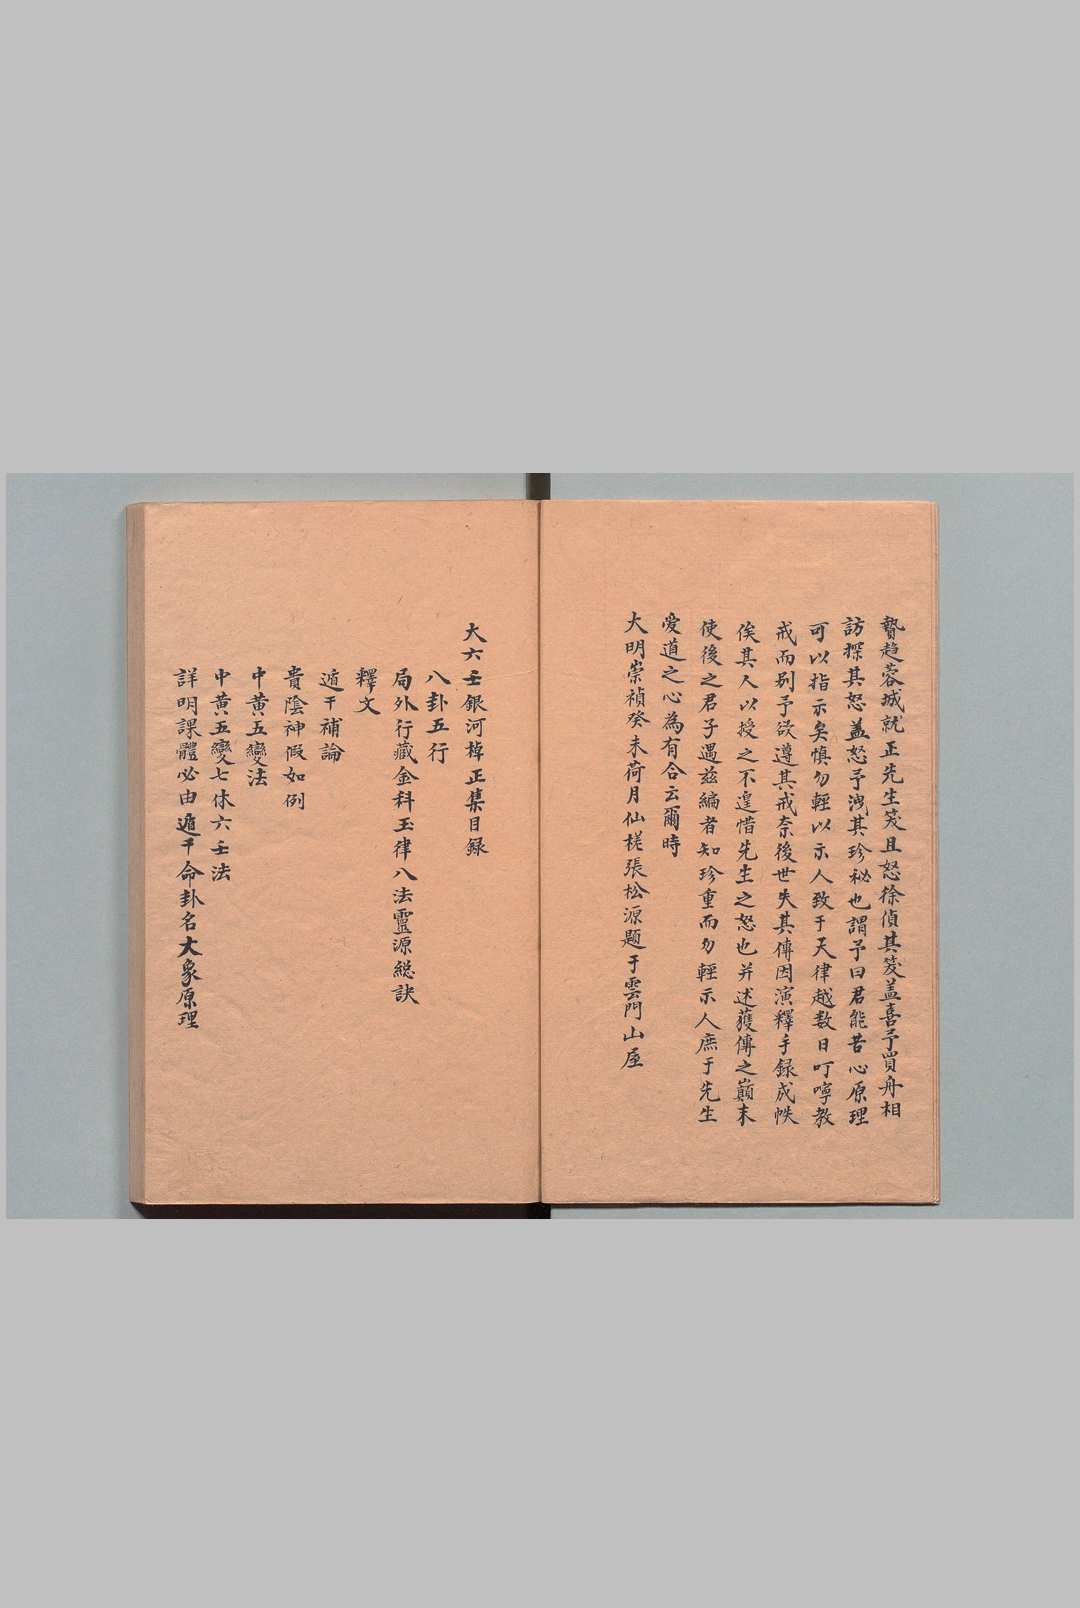 贄趋蓉城就正先生笑且怒徐偵其笑盖喜予買舟相
訪探其怒盖怒予洩其珍祕也謂予曰君能苦心原理
可以指示矣慎勿輕以示人致于天律越数日叮嚀教
戒而别予欲遵其戒奈後世失其傳因演釋手録成帙
俟其人以授之不遑惜先生之怒也并述獲傳之巔末
使後之君子遇兹編者知珍重而勿輕示人庶于先生
愛道之心為有合云爾時
大明崇禎癸未荷月仙槎張松源題于雲門山屋
大六壬銀河棹正集目録
八卦五行
局外行藏金科玉律八法靈源總訣
釋文
遁干補論
貴陰神假如例
中黄五變法
中黄五變七体六壬法
詳明課體必由遁干命卦名大象原理